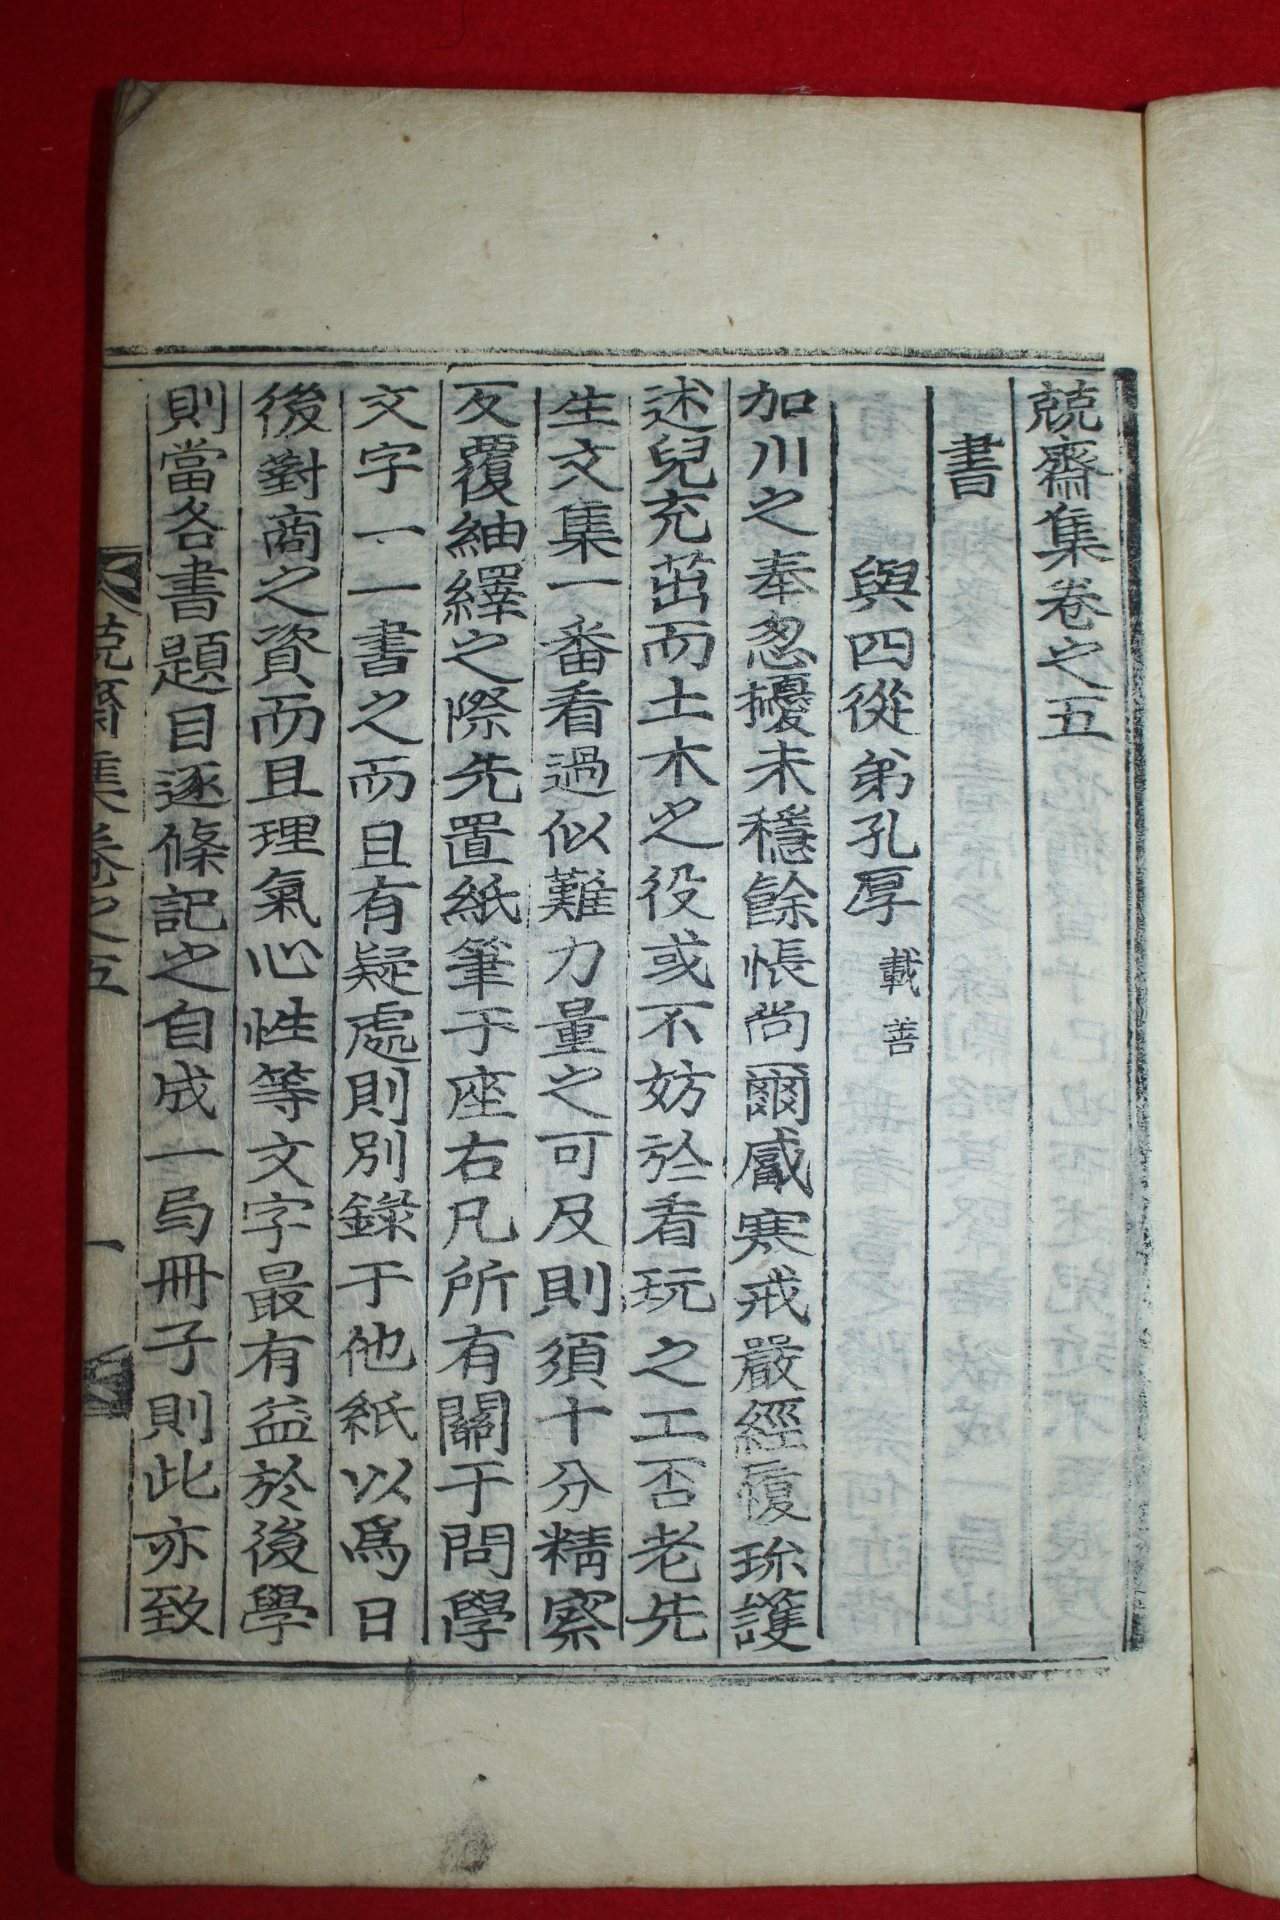 兢齋集卷之五
書
與四從弟孔厚 載善
加川之奉忽擾未穩餘悵尚爾威寒戒嚴經履珎護
述兒充茁而土木之役或不妨於看玩之工否老先
生文集一番看過似難力量之可及則須十分精察
反覆紬繹之際先置紙筆于座右凡所有關于問學
文字一一書之而且有疑處則別錄于他紙以爲日
後對商之資而且理氣心性等文字最有益於後學
則當各書題目逐條記之自成一局冊子則此亦致
兢齋集卷之五 一